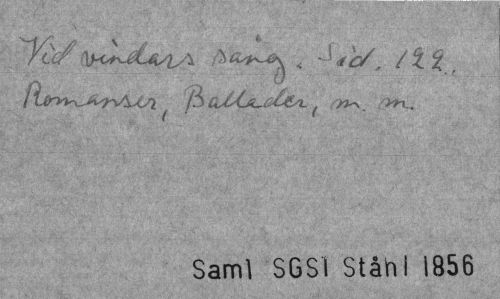 Vid vindars sång. Sid. 122.
Romanser, Ballader, m. m.
Saml SGSI Ståhl 1856